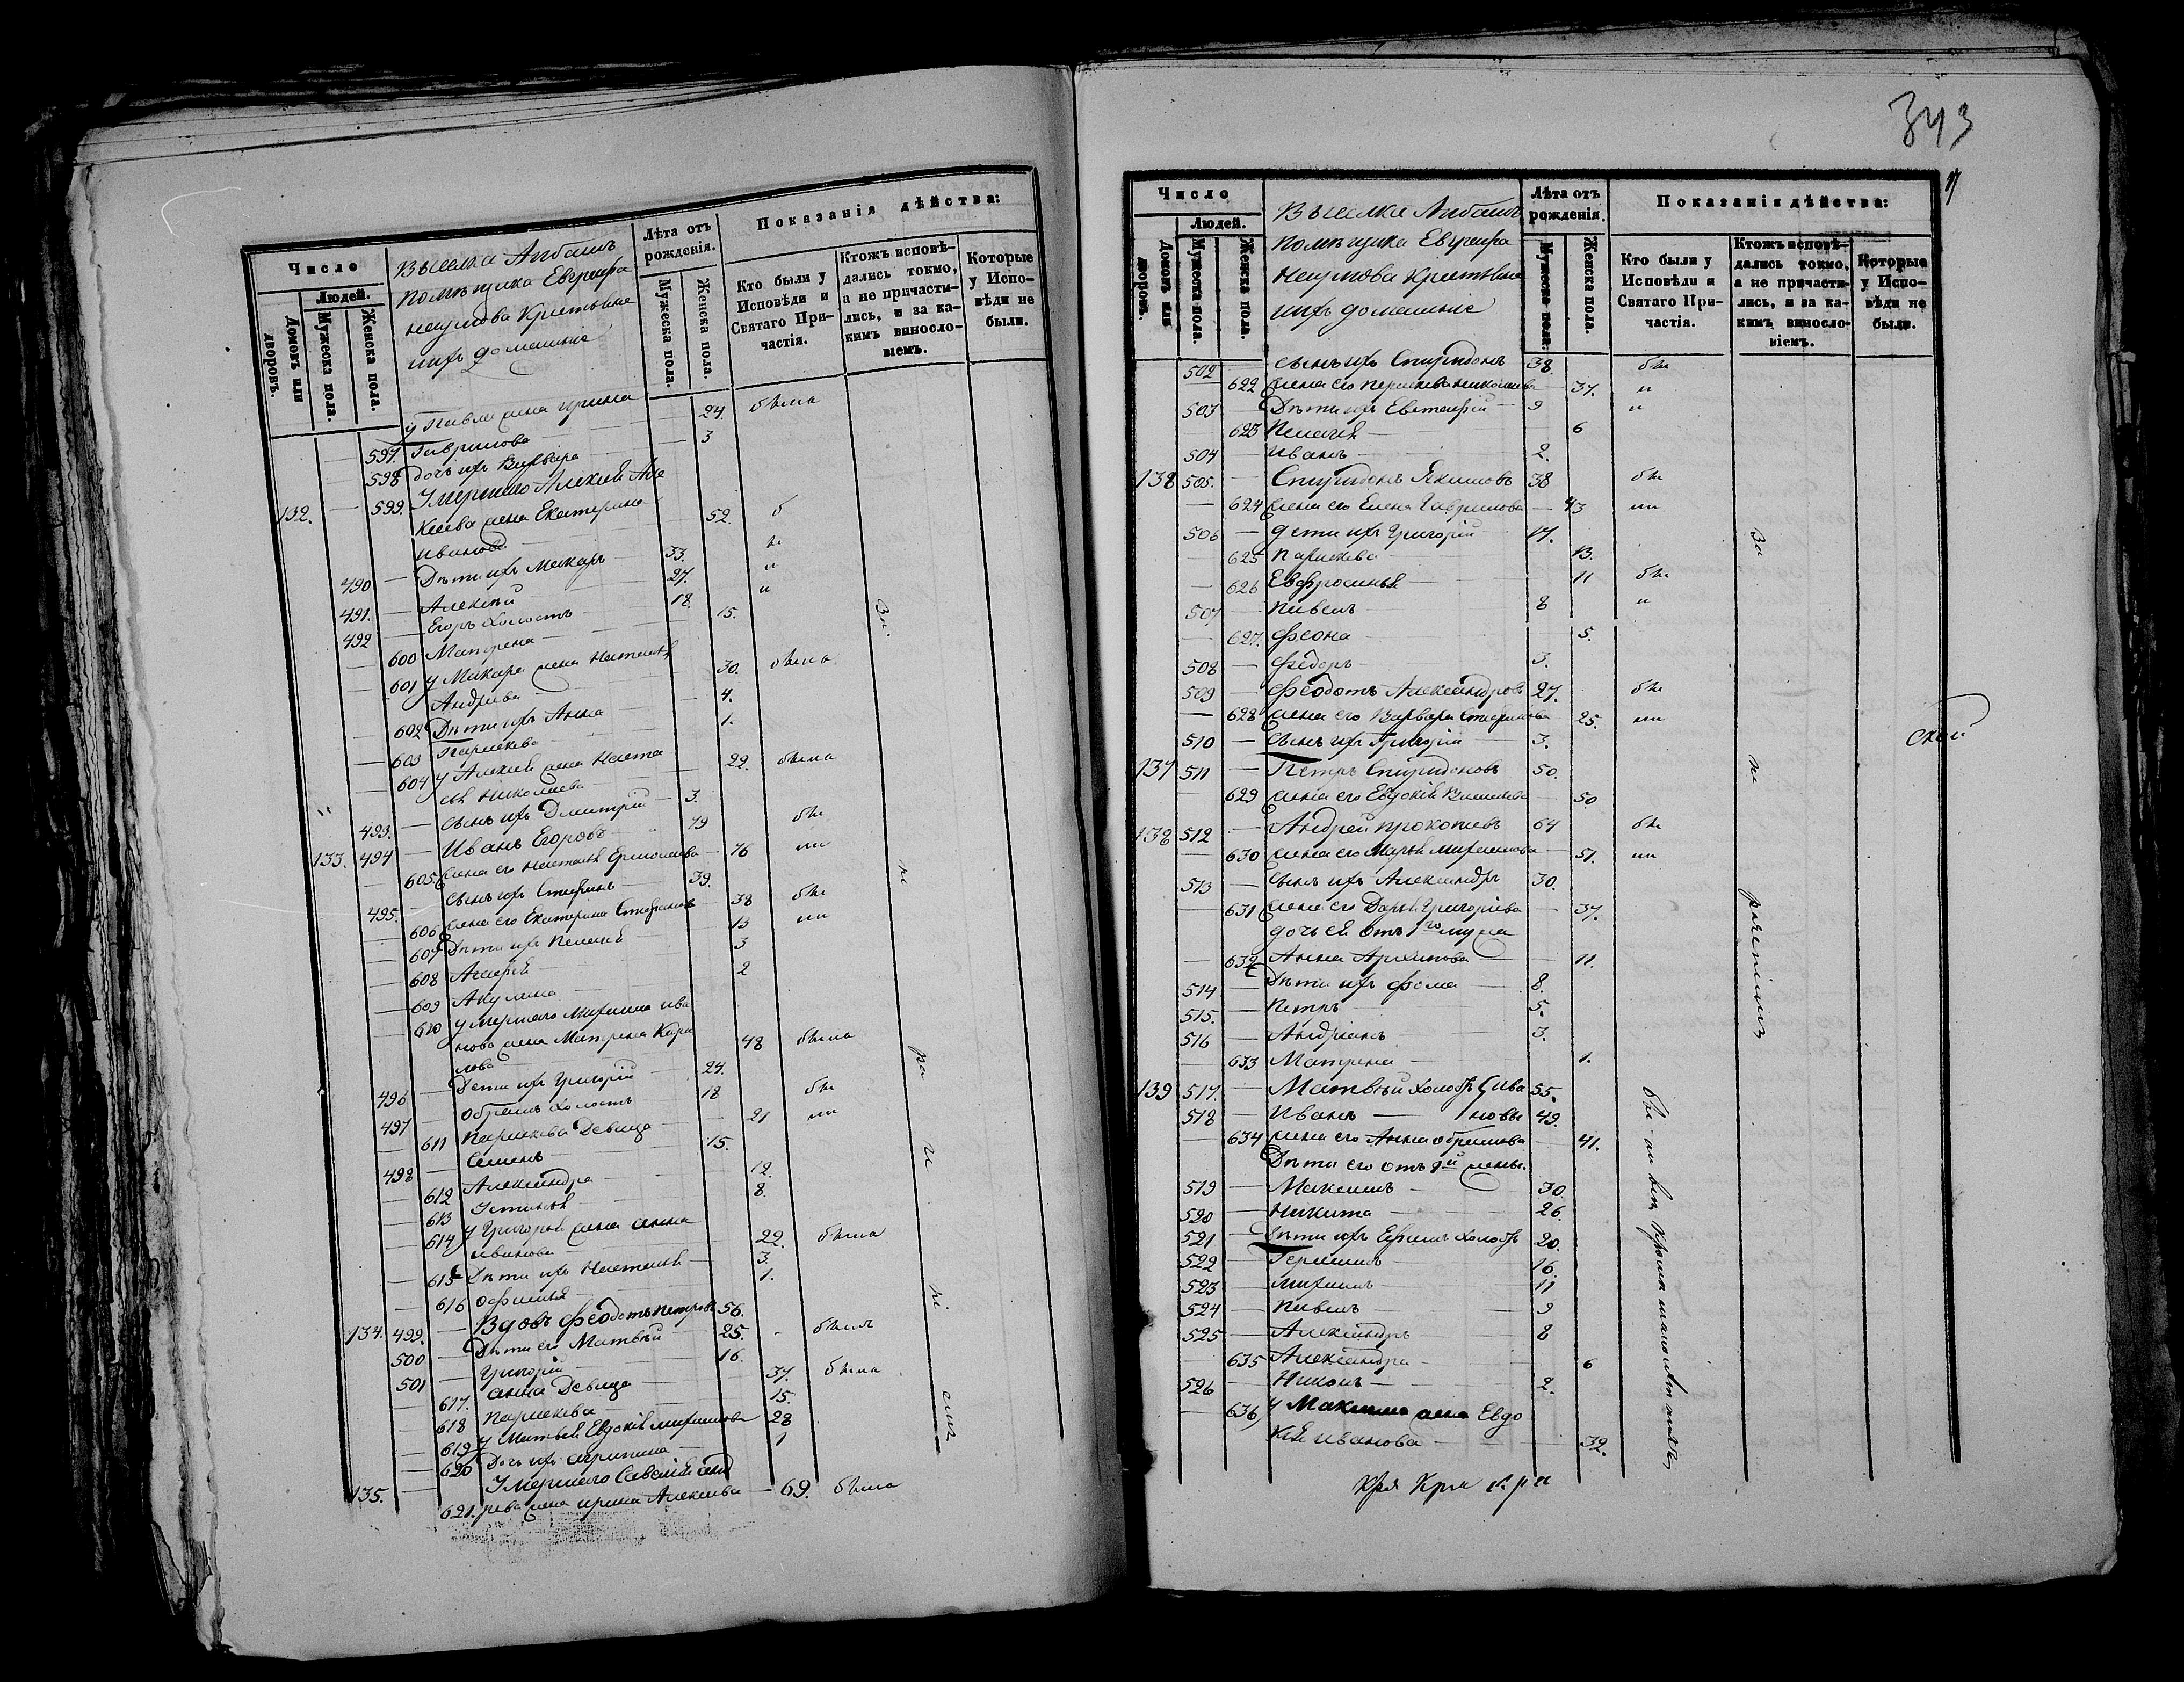 Число
Людей.
Домовъ или дворовъ.
Мужеска пола.
Женска пола.
Выселка
помѣщика Евграфа
ихъ домашніе
Лѣта отъ рожденія.
Мужеска пола.
Женска пола.
Показанія дѣйства:
Кто были у Исповѣди и Святаго Причастія.
Ктожъ исповѣдались токмо, а не причастились, и за какимъ винословіемъ.
Которые у Исповѣди не были.
у Павла жена Ирина 24. была
597. Гаврилова
598 дочь ихъ Варвара 3
132. 599. Умершаго Алексѣя Але
ксѣева жена Екатерина
Иванова 52.
490 Дѣти ихъ Макаръ 33.
491. Алексѣй 27.
492 Егоръ холостъ 18.
600 Матрена 15.
601 у Макара жена Наталья
Андреева 30. была
602 Дѣти ихъ Анна 4.
603 Параскева 1.
604 у Алексѣя жена Наста
сья Николаева 22. была
493. сынъ ихъ Димитрій 3.
133. 494 Иванъ Егоровъ 79
605 жена его Наталья Ермолаева 76
495. сынъ ихъ Стефанъ 39.
606 жена его Екатерина Стефанова 38
607 Дѣти ихъ Пелагея 13
608 Агафья 3
609 Акулина 2
610 умершаго Михаила Ива
нова жена Матрена Кири
лова 48 была
496 Дети ихъ Григорій 24.
497 Обрамъ холостъ 18
611 Параскева девица 21
498 Семенъ 15.
612 Александра 12.
613 Устинья 8.
614 у Григорья жена Анна
Иванова 22. была
615 Дѣти ихъ Наталья 3.
616 Офимья 1.
134. 499. Вдовъ Феодотъ Петровъ 56.
500 Дѣти его Матвѣй 25. былъ
501 Григорій 16.
617. Анна девица 37. была
618 Параскева 15.
619 у Матвея Евдокія Михайлова 28
620 Дочь ихъ Агрипина 1
135. Умершаго Савелія Анд
621. реева жена Ирина Алексеева 69. была
343
Число
Людей.
Домовъ или дворовъ.
Мужеска пола.
Женска пола.
Выселка
помѣщика Евграфа
ихъ домашніе
Лѣта отъ рожденія.
Мужеска пола.
Женска пола.
Показанія дѣйства:
Кто были у Исповѣди и Святаго Причастія.
Ктожъ исповѣдались токмо, а не причастились, и за какимъ винословіемъ.
Которые у Исповѣди не были.
502 сынъ ихъ Спиридонъ 38
622 жена его Параскева Николаева 37.
503 Дѣти ихъ Евстафій 9
623 Пелагея 6
504 Иванъ 2.
138 505. Спиридонъ Якимовъ 38
624 жена его Елена Гаврилова 43
506 дети ихъ Григорій 17.
625 Параскева 13.
626 Евфросинья 11
507 Павелъ 8
627. Феона 5.
508 Федоръ 3.
509 Феодотъ Александровъ 27.
628 жена его Варвара Стефанова 25.
510 сынъ ихъ Григорій 3.
137 511 Петръ Спиридоновъ 50.
629 жена его Евдокія Васильева 50
138 512 Андрей Прокопьевъ 64
630 жена его Марья Михайлова 51.
513 сынъ ихъ Александръ 30.
631 жена его Дарья Григорьева 37.
дочь ея отъ 1го мужа
632 Анна 11.
514 Дѣти ихъ Фома 8.
515. Петръ 5.
516 Андріанъ 3.
633 Матрена 1.
139 517. Матвѣй холостъ Ива 55.
518 Иванъ новы 49.
634 жена его Анна Обрамова 41.
Дѣти его отъ 1й жены
519 Максимъ 30.
520 Никита 26.
521 Дѣти ихъ Ефимъ холостъ 20.
522 Герасимъ 16
523 Михаилъ 11
524 Павелъ 9
525 Александръ 8
635 Александра 6
526 Никонъ 2.
636 у Максима жена Евдо
кія Иванова 32.